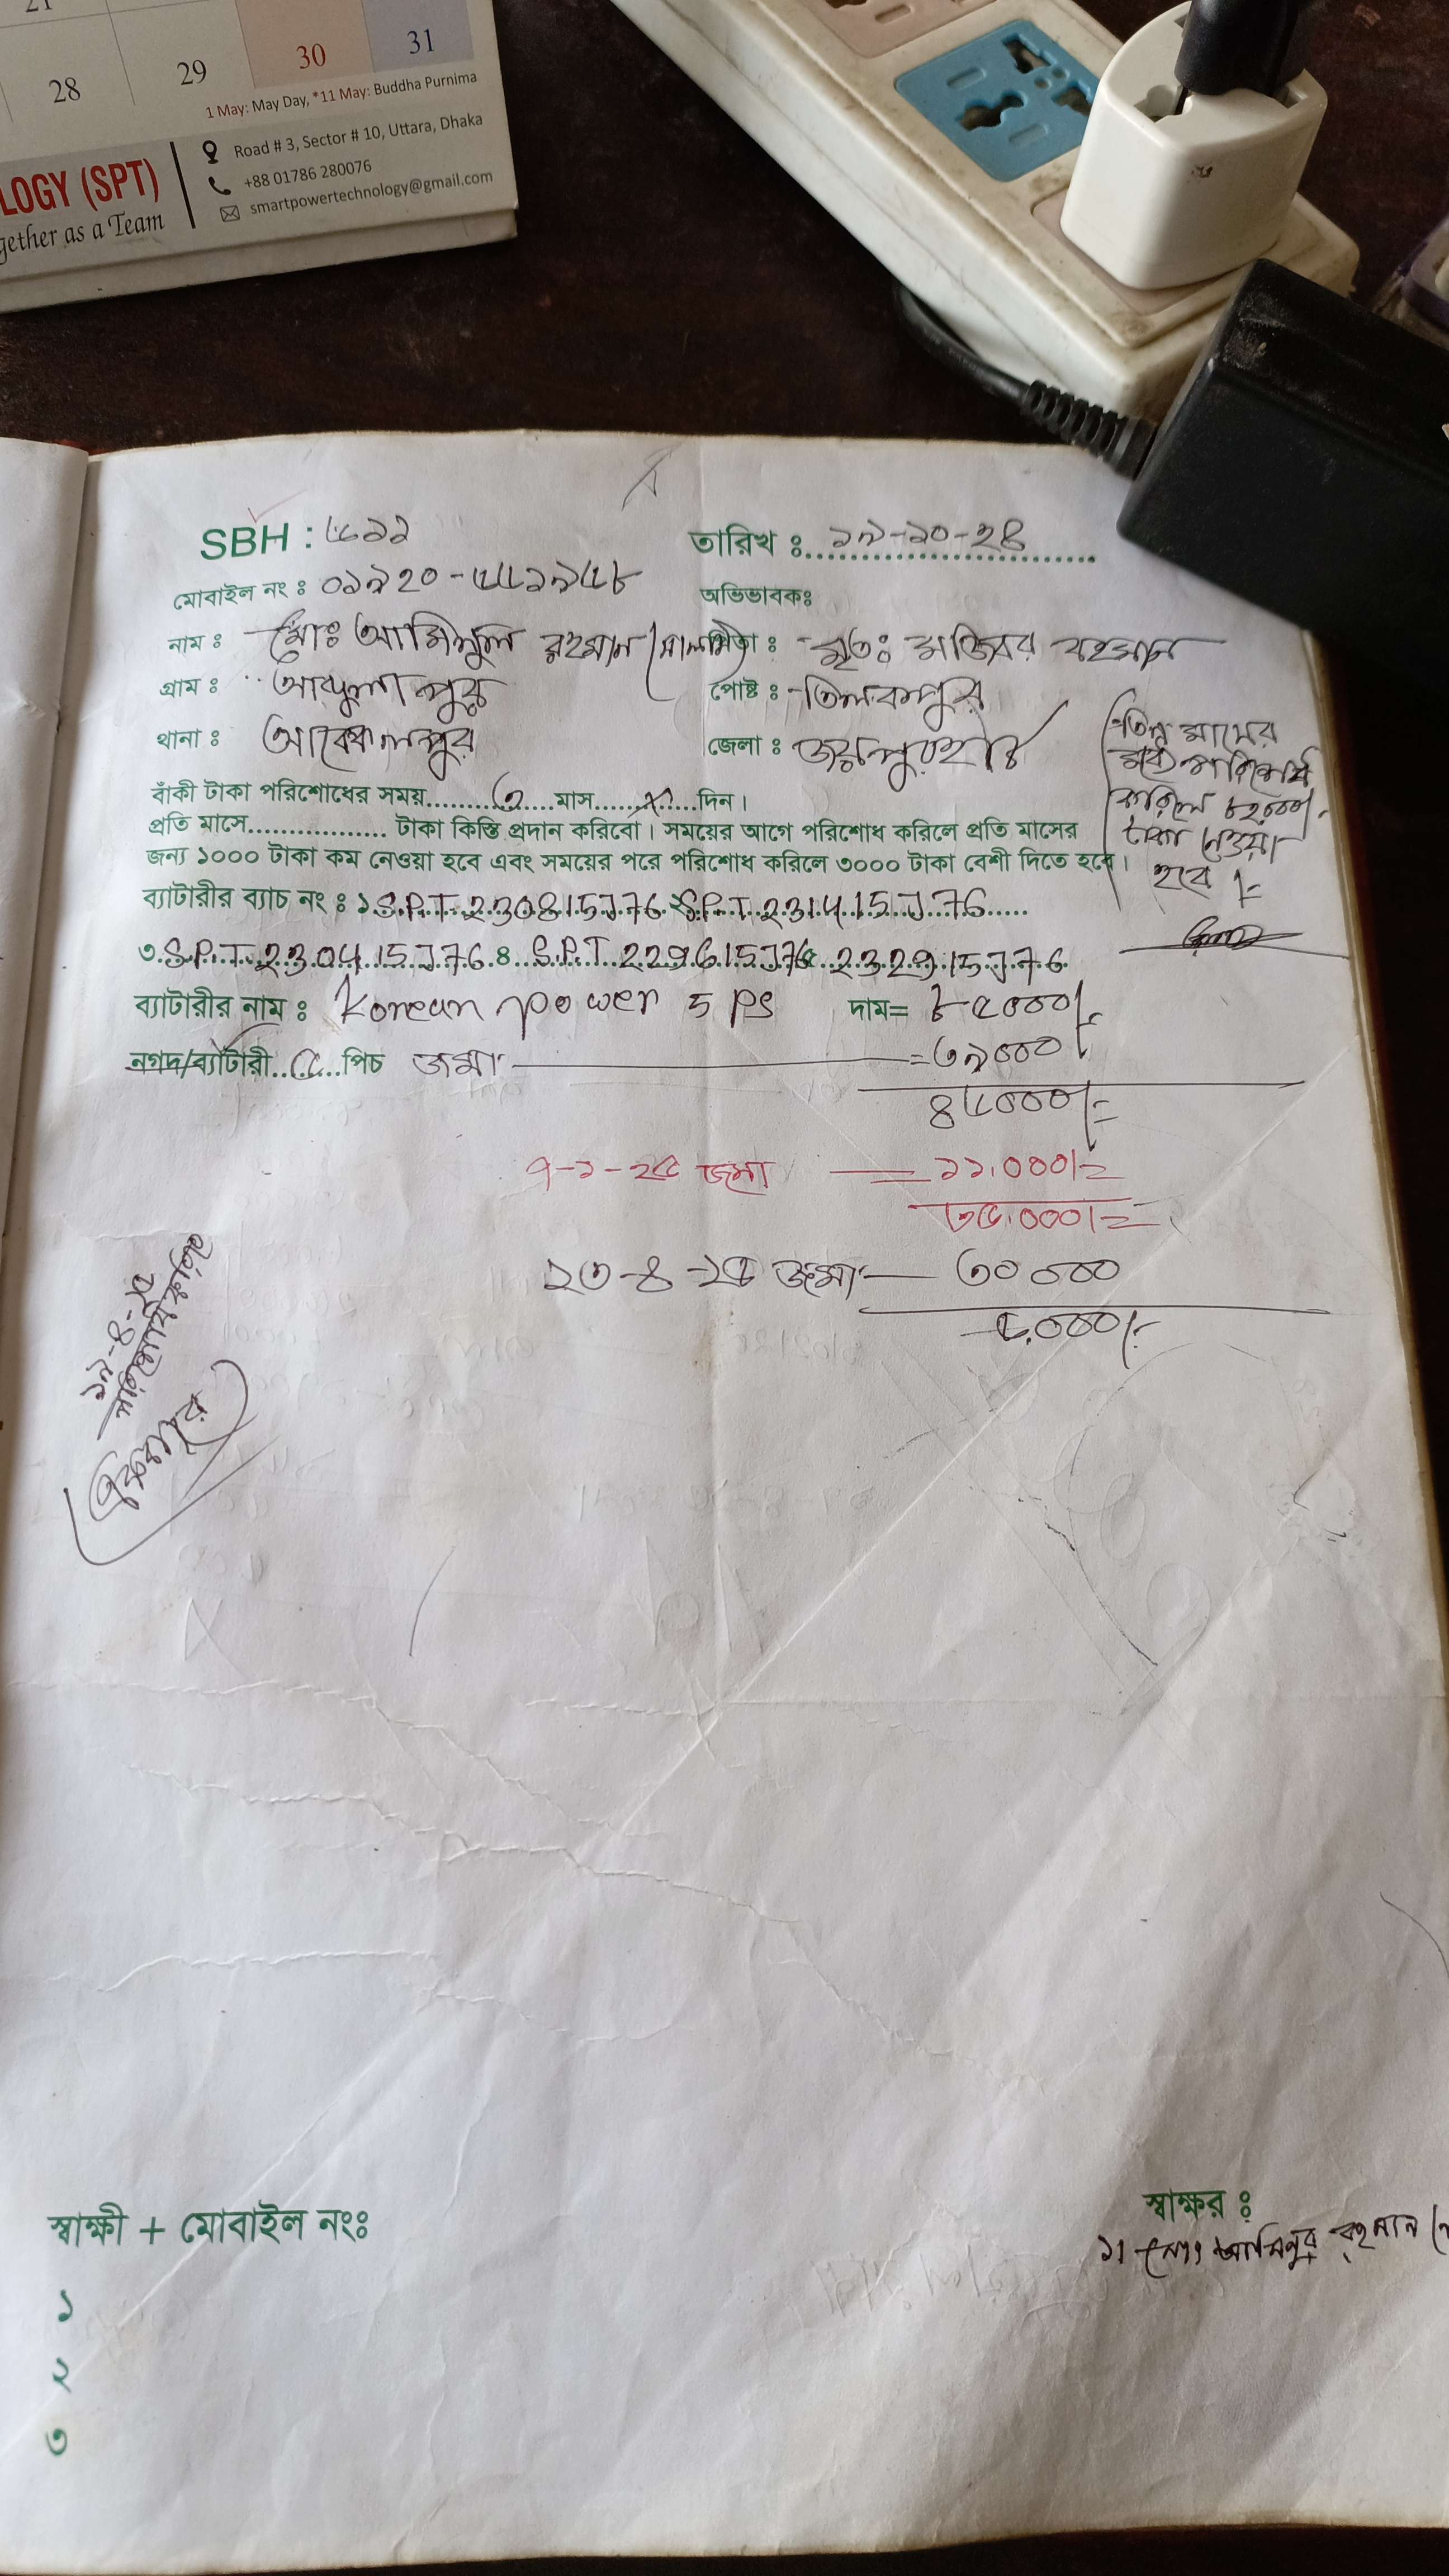 21
28 29 30 31
1 May: May Day, *11 May: Buddha Purnima
LOGY (SPT)
gether as a Team
Road # 3, Sector # 10, Uttara, Dhaka
+88 01786 280076
smartpowertechnology@gmail.com
SBH : ৫৬১১
তারিখ ঃ ১৯-১০-২৪
মোবাইল নং ঃ
অভিভাবকঃ
নাম ঃ মোঃ আমিনুল রহমান
পিতা ঃ মৃতঃ মজিবর রহমান
গ্রাম ঃ আব্দুলাপুর
পোষ্ট ঃ তিলকপুর
থানা ঃ আক্কেলপুর
জেলা ঃ জয়পুরহাট
তিন মাসের
মধ্যে পরিশোধ
করিলে ৮২০০০/-
টাকা নেওয়া
হবে।
বাঁকী টাকা পরিশোধের সময়.........৩.....মাস.......x.....দিন।
প্রতি মাসে................ টাকা কিস্তি প্রদান করিবো। সময়ের আগে পরিশোধ করিলে প্রতি মাসের
জন্য ১০০০ টাকা কম নেওয়া হবে এবং সময়ের পরে পরিশোধ করিলে ৩০০০ টাকা বেশী দিতে হবে।
ব্যাটারীর ব্যাচ নং ঃ ১ SPT 230815J76 ২ SPT 231415J76
৩ SPT 230415J76 ৪ SPT 229615J76 ৫ 232915J76
ব্যাটারীর নাম ঃ Korean power 5 ps দাম= ৮৫০০০/-
নগদ/ব্যাটারী ৫ পিচ জমা = ৩৯০০০/-
৪৬০০০/=
৭-১-২৫ জমা = ১১,০০০/=
৩৫,০০০/=
২৩-৪-২৫ জমা — ৩০০০০
৫,০০০/-
স্বাক্ষী + মোবাইল নংঃ
স্বাক্ষর ঃ
১। মোঃ আমিনুর রহমান
১
২
৩